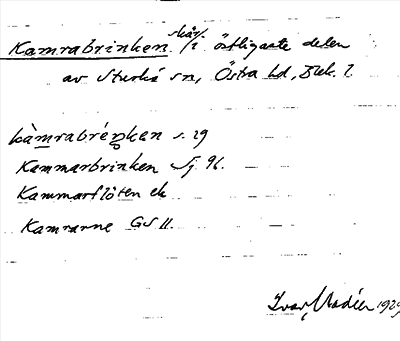 Kamrabrinken skär i östligaste delen
av Sturkö sn, Östra hd, Blek. l.
kàmrabréŋken s. 29
Kammarbrinken Sj. 96.
Kammarflöten ek
Kamrarne GS II.
Ivar Modéer 1929